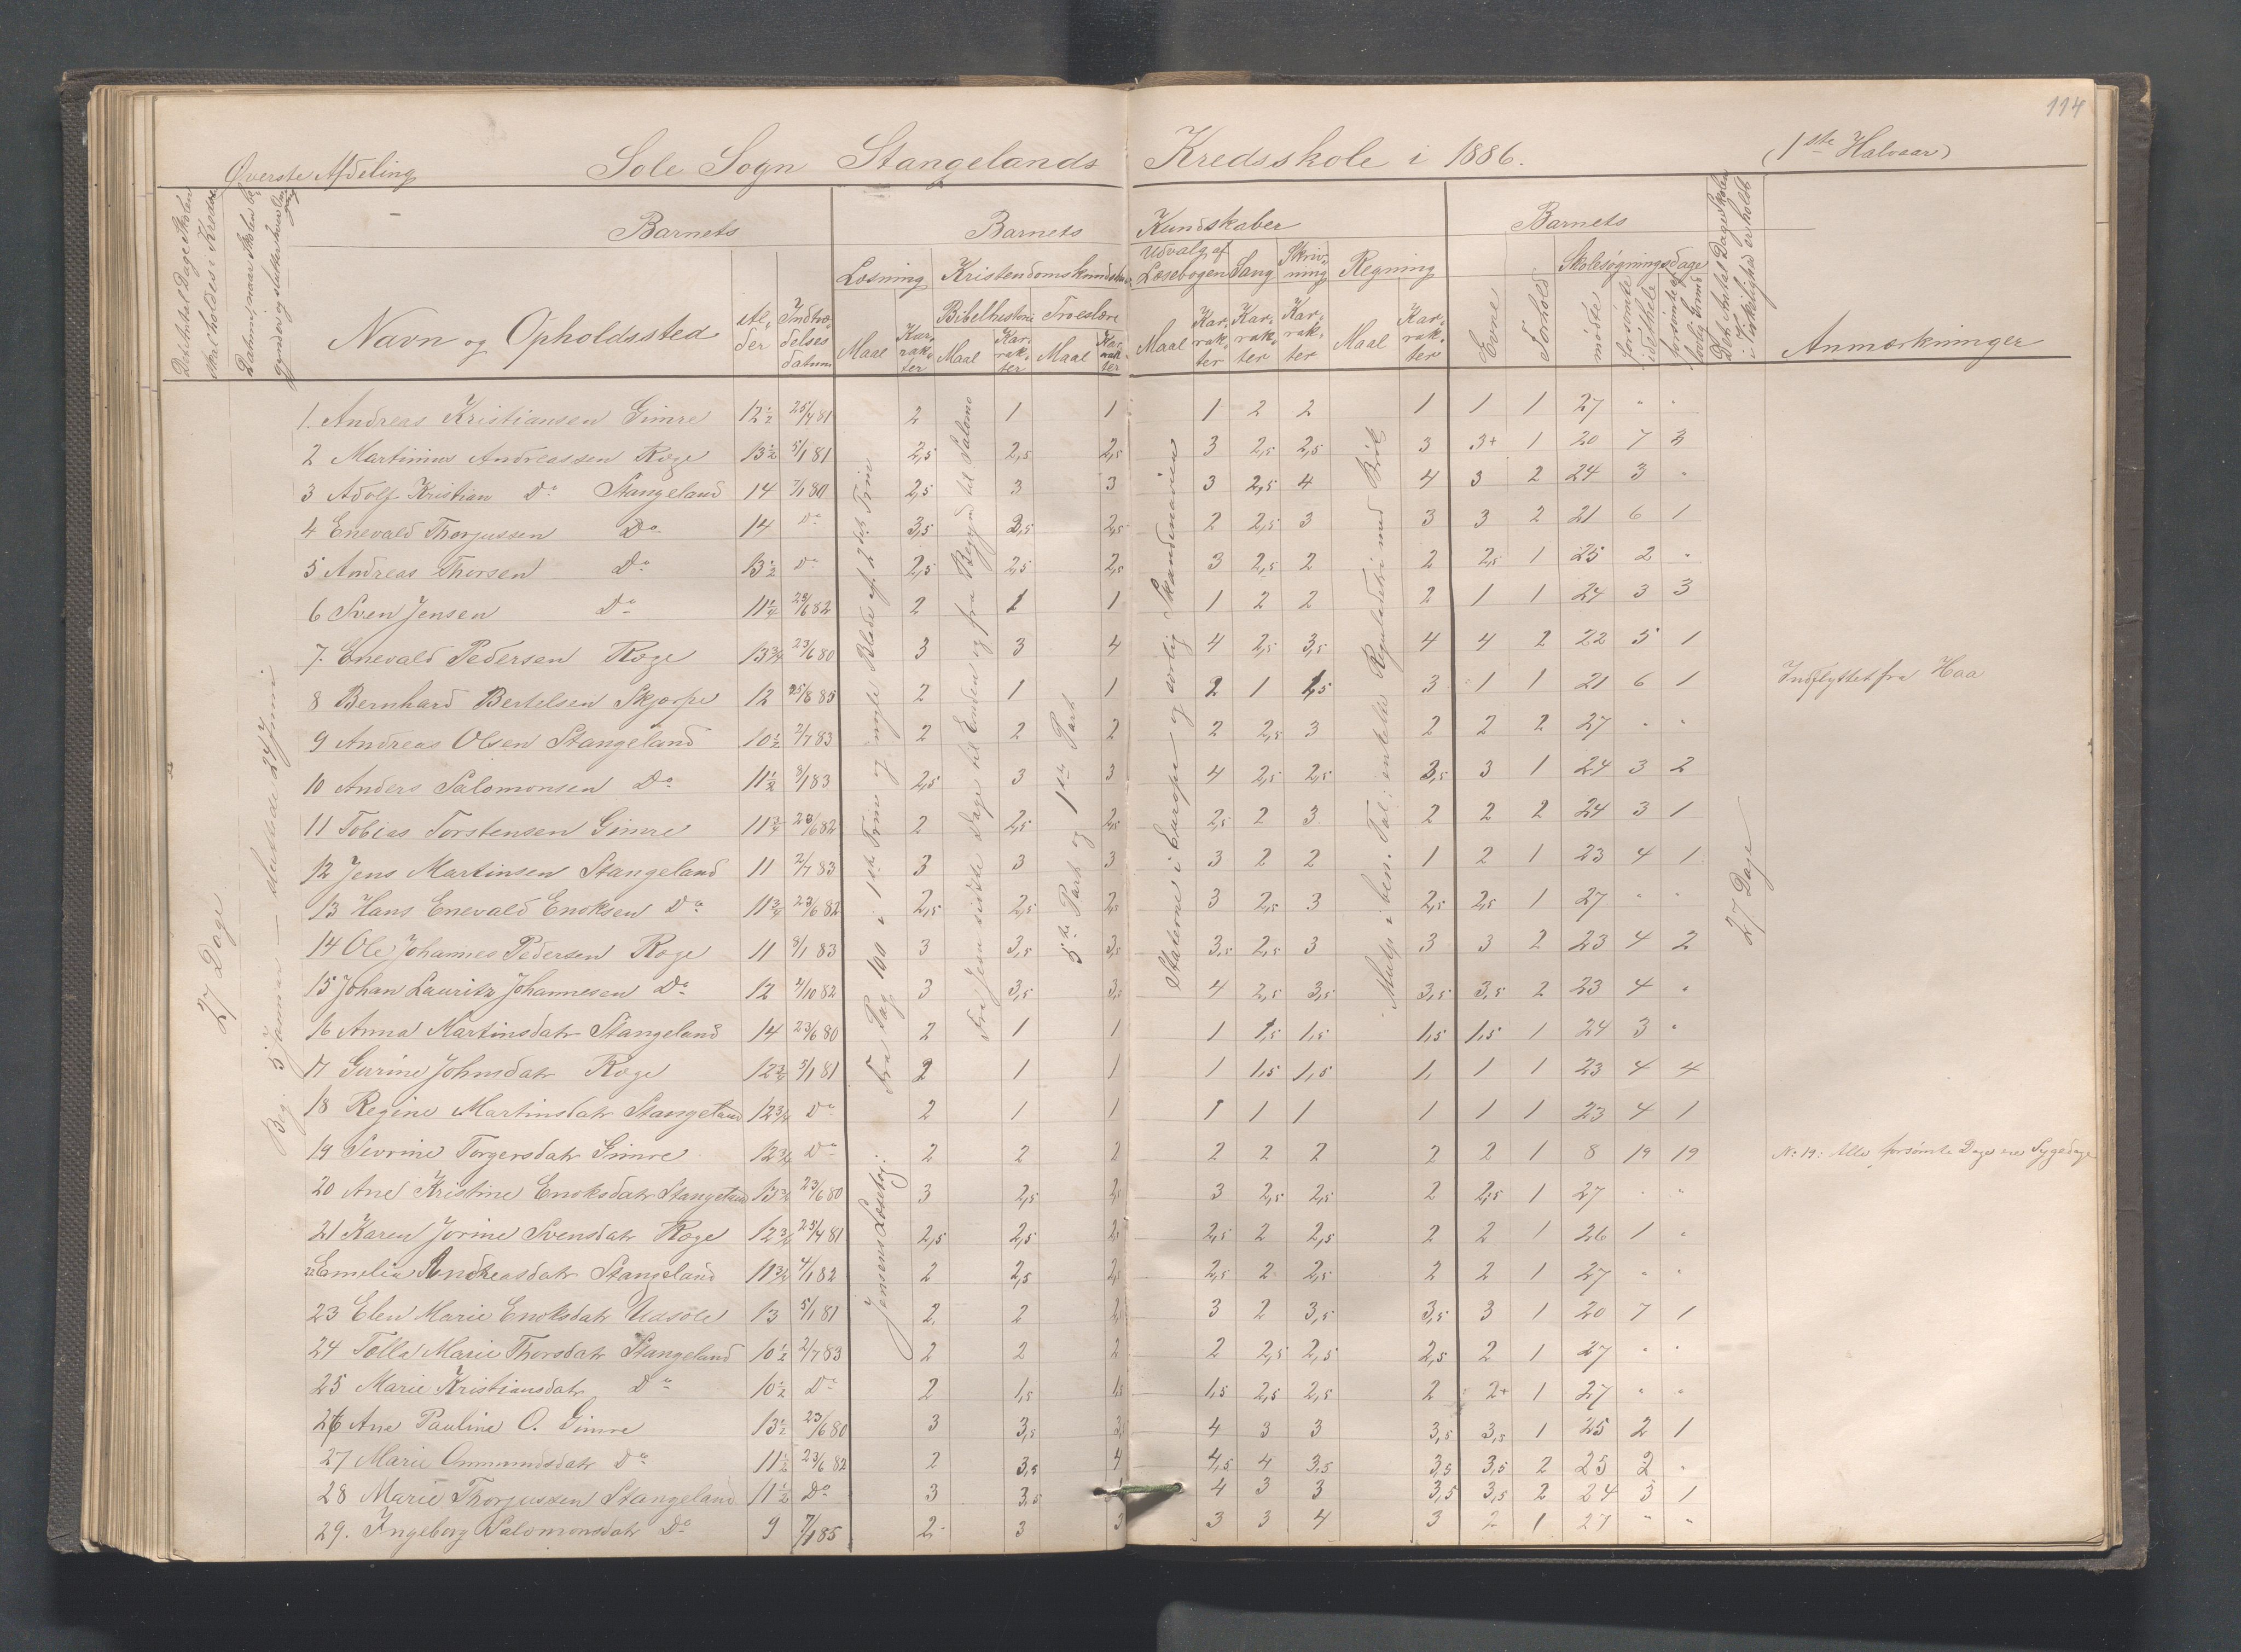 114
Øverste Afdeling Sole Sogn Stangelands Kredsskole i 1886. (1ste Halvaar)
Det Antal Dage Skolen skal holdes i Kredsen
Datum, naar Skolen begynder og slutter hver Omgang
Barnets
Navn og Opholdssted
Alder
Indtrædelsesdatum
Barnets Kundskaber
Læsning Kristendomskundskab Udvalg af Læsebogen Sang Skrivning Regning
Bibelhistorie Troeslære
Maal Karakter Maal Karakter Maal Karakter Maal Karakter Karakter Karakter Maal Karakter
Barnets
Evne Forhold
Skolesøgningsdage
mødte forsømte i det Hele forsømte af lovlig Grund
Det Antal Dage Skolen i Virkelighed er holdt
Anmærkninger
27 Dage
Beg. 5 Januar – sluttede 24 Juni
Jensens Læsebog: Fra Pag 100 i 1ste Trin og nogle Blade af 2det Trin
Fra Jesu sidste Dage til Enden og fra Begynd til Salomo
5te Part og 1ste Part
Staterne i Europa og særlig Skandinavien
Multp i ben. Tal; enkelte Reguladetri med Brök
27 Dage
1. Andreas Kristiansen Gimre 12½ 25/4 81 2 1 1 1 2 2 1 1 1 27 " "
2 Martinius Andreassen Roge 13½ 5/1 81 2,5 2,5 2,5 3 2,5 2,5 3 3+ 1 20 7 3
3 Adolf Kristian Do Stangeland 14 7/1 80 2,5 3 3 3 2,5 4 4 3 2 24 3 "
4 Enevald Thorjussen Do 14 Do 3,5 2,5 2,5 2 2,5 3 3 3 2 21 6 1
5 Andreas Thorsen Do 13½ Do 2,5 2,5 2,5 3 2,5 2 2 2,5 1 25 2 "
6 Sven Jensen Do 11½ 23/6 82 2 1 1 1 2 2 2 1 1 24 3 3
7. Enevald Pedersen Roge 13¾ 23/6 80 3 3 4 4 2,5 3,5 4 4 2 22 5 1
8 Bernhard Bertelsen Skjorpe 12 25/8 85 2 1 1 2 1 1,5 3 1 1 21 6 1 Indflyttet fra Haa
9 Andreas Olsen Stangeland 10½ 2/7 83 2 2 2 2 2,5 3 2 2 2 27 " "
10 Anders Salomonsen Do 11½ 8/1 83 2,5 3 3 4 2,5 2,5 3,5 3 1 24 3 2
11 Tobias Torstensen Gimre 11¾ 23/6 82 2 2,5 2,5 2,5 2 3 2 2 2 24 3 1
12 Jens Martinsen Stangeland 11 2/7 83 3 3 3 3 2 2 1 2 1 23 4 1
13 Hans Enevald Enoksen Do 11¾ 23/6 82 2,5 2,5 2,5 3 2,5 3 2,5 2,5 1 27 " "
14 Ole Johannes Pedersen Roge 11 8/1 83 3 3,5 3,5 3,5 2,5 3 3 3 2 23 4 2
15 Johan Lauritz Johannesen Do 12 2/10 82 3 3,5 3,5 4 2,5 3,5 3,5 3,5 2 23 4 "
16 Anna Martinsdatr Stangeland 14 23/6 80 2 1 1 1 1,5 1,5 1,5 1,5 1 24 3 "
17 Gurine Johnsdatr Roge 12¾ 5/1 81 2 1 1 1 1,5 1,5 1, 1 1 23 4 4
18 Regine Martinsdatr Stangeland 12¾ Do 2 1 1 1 1 1 1 1 1 23 4 1
19 Sevrine Torgersdatr Gimre 12¾ Do 2 2 2 2 2 2 2 2 1 8 19 19 No 19: Alle forsømte Dage ere Sygedage
20 Ane Kristine Enoksdatr Stangeland 13¾ 23/6 80 3 2,5 2,5 3 2,5 2,5 2 2,5 1 27 " "
21 Karen Jorine Svensdatr Roge 12¾ 25/4 81 2,5 2,5 2,5 2,5 2 2,5 2 2 1 26 1 "
22 Emelia Andreasdatr Stangeland 11¾ 4/1 82 2 2,5 2,5 2,5 2 2,5 2 2 1 27 " "
23 Elen Marie Enoksdatr Udsole 13 5/1 81 2 2 2,5 3 2 3,5 3,5 3 1 20 7 1
24 Tolla Marie Thorsdatr Stangeland 10½ 2/7 83 2 2 2 2 2,5 2,5 2,5 2 1 27 " "
25 Marie Kristiansdatr Do 10½ Do 2 1,5 1,5 1,5 2,5 2,5 2 2+ 1 27 " "
26 Ane Pauline O. Gimre 13½ 23/6 80 3 3,5 3,5 4 3 3 3,5 3,5 1 25 2 1
27 Marie Ommundsdatr Do 11½ 23/6 82 2 3,5 4 4,5 4 3,5 3,5 3,5 2 25 2 "
28 Marie Thorjussen Stangeland 11½ Do 3 3,5 4 3 3 3,5 3,5 2 24 3 1
29. Ingeborg Salomonsdatr Do 9 7/1 85 2 3 3 3 3 4 3 2 1 27 " "